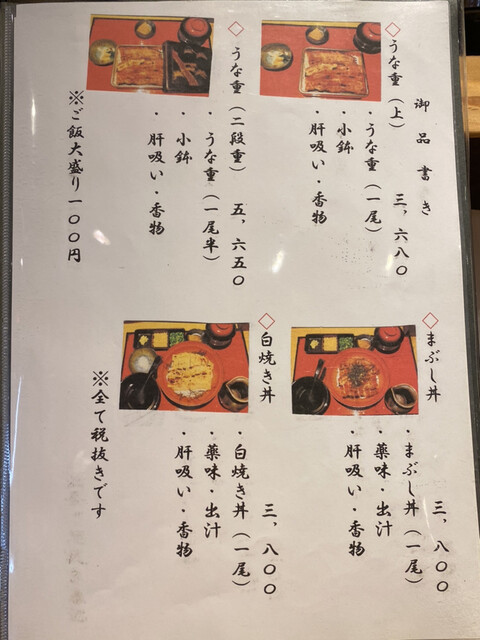 御品書き
◇うな重（上） 三，六八〇
・うな重（一尾）
・小鉢
・肝吸い・香物
◇うな重（二段重） 五，六五〇
・うな重（一尾半）
・小鉢
・肝吸い・香物
※ご飯大盛り一〇〇円
◇まぶし丼 三，八〇〇
・まぶし丼（一尾）
・薬味・出汁
・肝吸い・香物
◇白焼き丼 三，八〇〇
・白焼き丼（一尾）
・薬味・出汁
・肝吸い・香物
※全て税抜きです